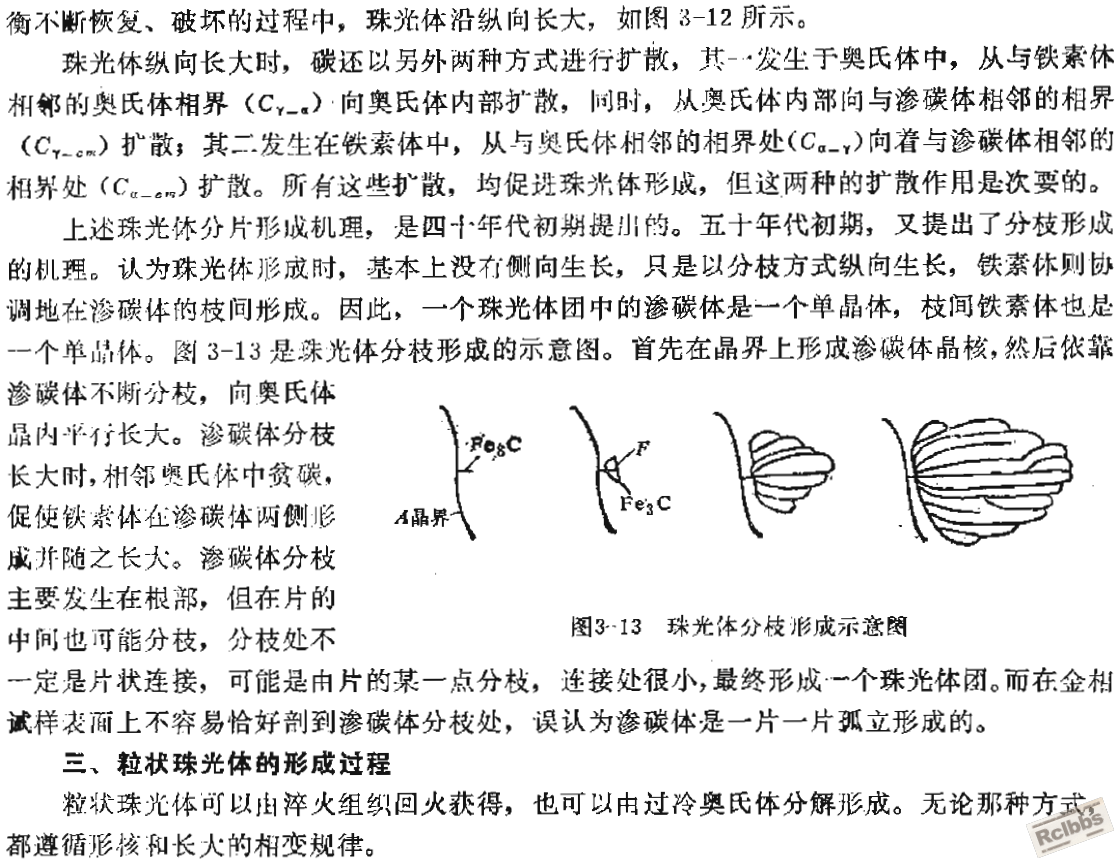 衡不断恢复、破坏的过程中，珠光体沿纵向长大，如图 3-12 所示。
珠光体纵向长大时，碳还以另外两种方式进行扩散，其一发生于奥氏体中，从与铁素体
相邻的奥氏体相界（Cγ-α）向奥氏体内部扩散，同时，从奥氏体内部向与渗碳体相邻的相界
（Cγ-cm）扩散；其二发生在铁素体中，从与奥氏体相邻的相界处(Cα-γ)向着与渗碳体相邻的
相界处（Cα-cm）扩散。所有这些扩散，均促进珠光体形成，但这两种的扩散作用是次要的。
上述珠光体分片形成机理，是四十年代初期提出的。五十年代初期，又提出了分枝形成
的机理。认为珠光体形成时，基本上没有侧向生长，只是以分枝方式纵向生长，铁素体则协
调地在渗碳体的枝间形成。因此，一个珠光体团中的渗碳体是一个单晶体，枝间铁素体也是
一个单晶体。图 3-13 是珠光体分枝形成的示意图。首先在晶界上形成渗碳体晶核，然后依靠
渗碳体不断分枝，向奥氏体
晶内平行长大。渗碳体分枝
长大时，相邻奥氏体中贫碳，
促使铁素体在渗碳体两侧形
成并随之长大。渗碳体分枝
主要发生在根部，但在片的
中间也可能分枝，分枝处不
Fe3C
A晶界
F
Fe3C
图3-13 珠光体分枝形成示意图
一定是片状连接，可能是由片的某一点分枝，连接处很小，最终形成一个珠光体团。而在金相
试样表面上不容易恰好剖到渗碳体分枝处，误认为渗碳体是一片一片孤立形成的。
三、粒状珠光体的形成过程
粒状珠光体可以由淬火组织回火获得，也可以由过冷奥氏体分解形成。无论那种方式，
都遵循形核和长大的相变规律。
Rclbbs